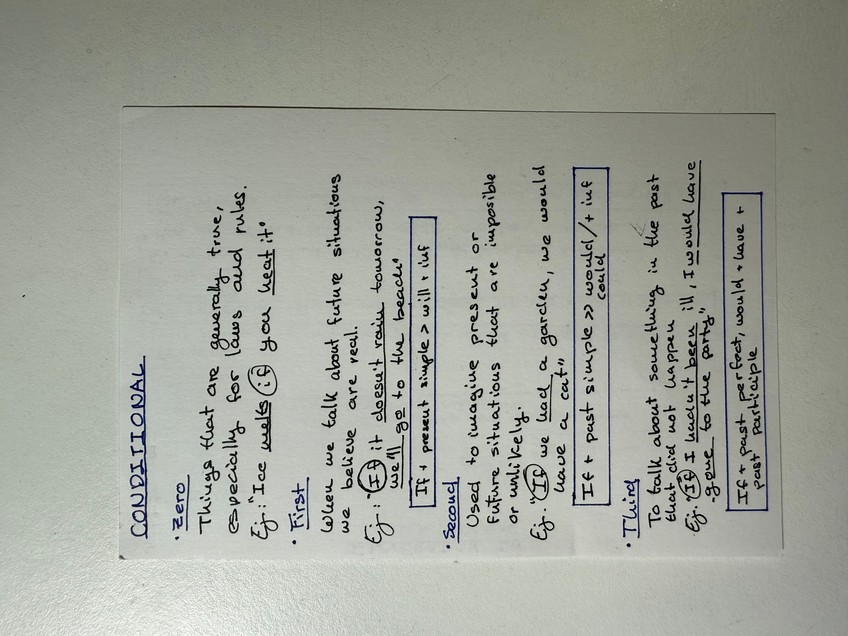 CONDITIONAL
· Zero
Things that are generally true,
especially for laws and rules.
Ej: "Ice melts if you heat it"
· First
When we talk about future situations
we believe are real.
Ej: "If it doesn't rain tomorrow,
we'll go to the beach"
If + present simple > will + inf
· Second
Used to imagine present or
future situations that are imposible
or unlikely.
Ej. "If we had a garden, we would
have a cat"
If + past simple >> would/ + inf
could
· Third
To talk about something in the past
that did not happen
Ej. "If I hadn't been ill, I would have
gone to the party"
If + past perfect, would + have +
past participle